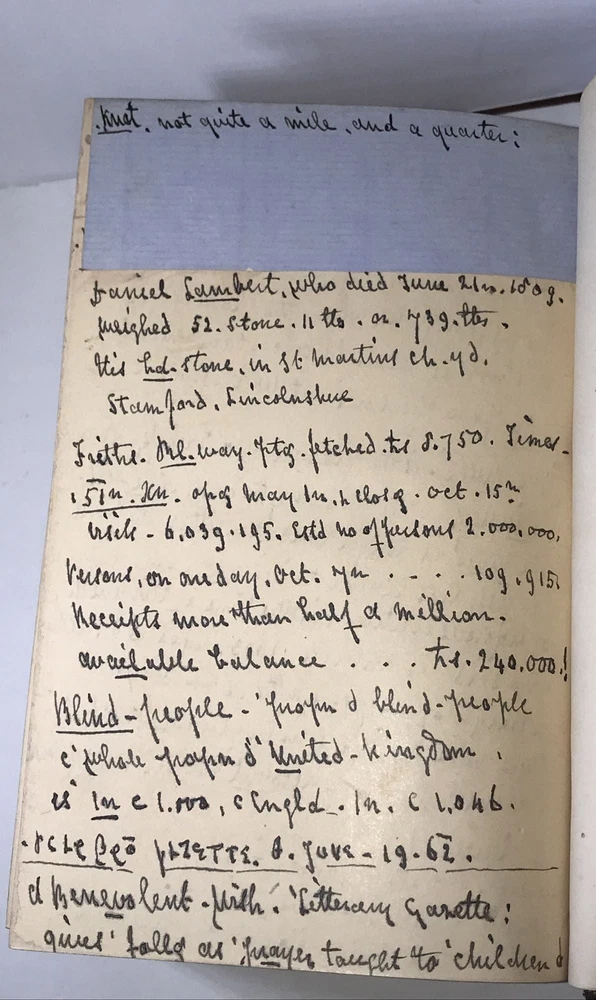 Knot, not quite a mile, and a quarter:
Daniel Lambert, who died June 21n. 1809.
weighed 52. stone. 11 lbs. or. 739. lbs.
His hd-stone, in St Martins ch. yd.
Stamford, Lincolnshire
Friths. Rl. way. ptg. fetched. £s 8.750. Times-
'51n. Xn. opg May 1n, & closg. Oct. 15n
visits - 6.039.195. Estd no of persons 2.000.000,
Persons, on one day, Oct. 7n . - . . 109.915.
Receipts more than half a million.
available balance . . . £s. 240.000.!
Blind - people - 'propn d blind-people
c' whole popn d' United-Kingdom.
is 1n c 1.000, c Engld. 1n. c 1.046.
JUNE - 19-62.
d Benevolent - with. 'Litterary Gazette:
gives' follg as 'prayer taught to 'children d